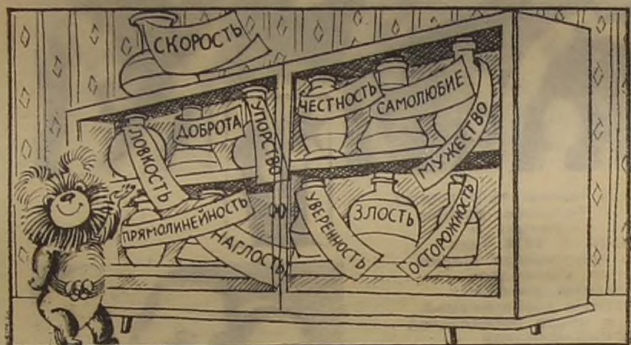 СКОРОСТЬ
ЛОВКОСТЬ
ДОБРОТА
УПОРСТВО
ЧЕСТНОСТЬ
САМОЛЮБИЕ
МУЖЕСТВО
ПРЯМОЛИНЕЙНОСТЬ
НАГЛОСТЬ
УВЕРЕННОСТЬ
ЗЛОСТЬ
ОСТОРОЖНОСТЬ